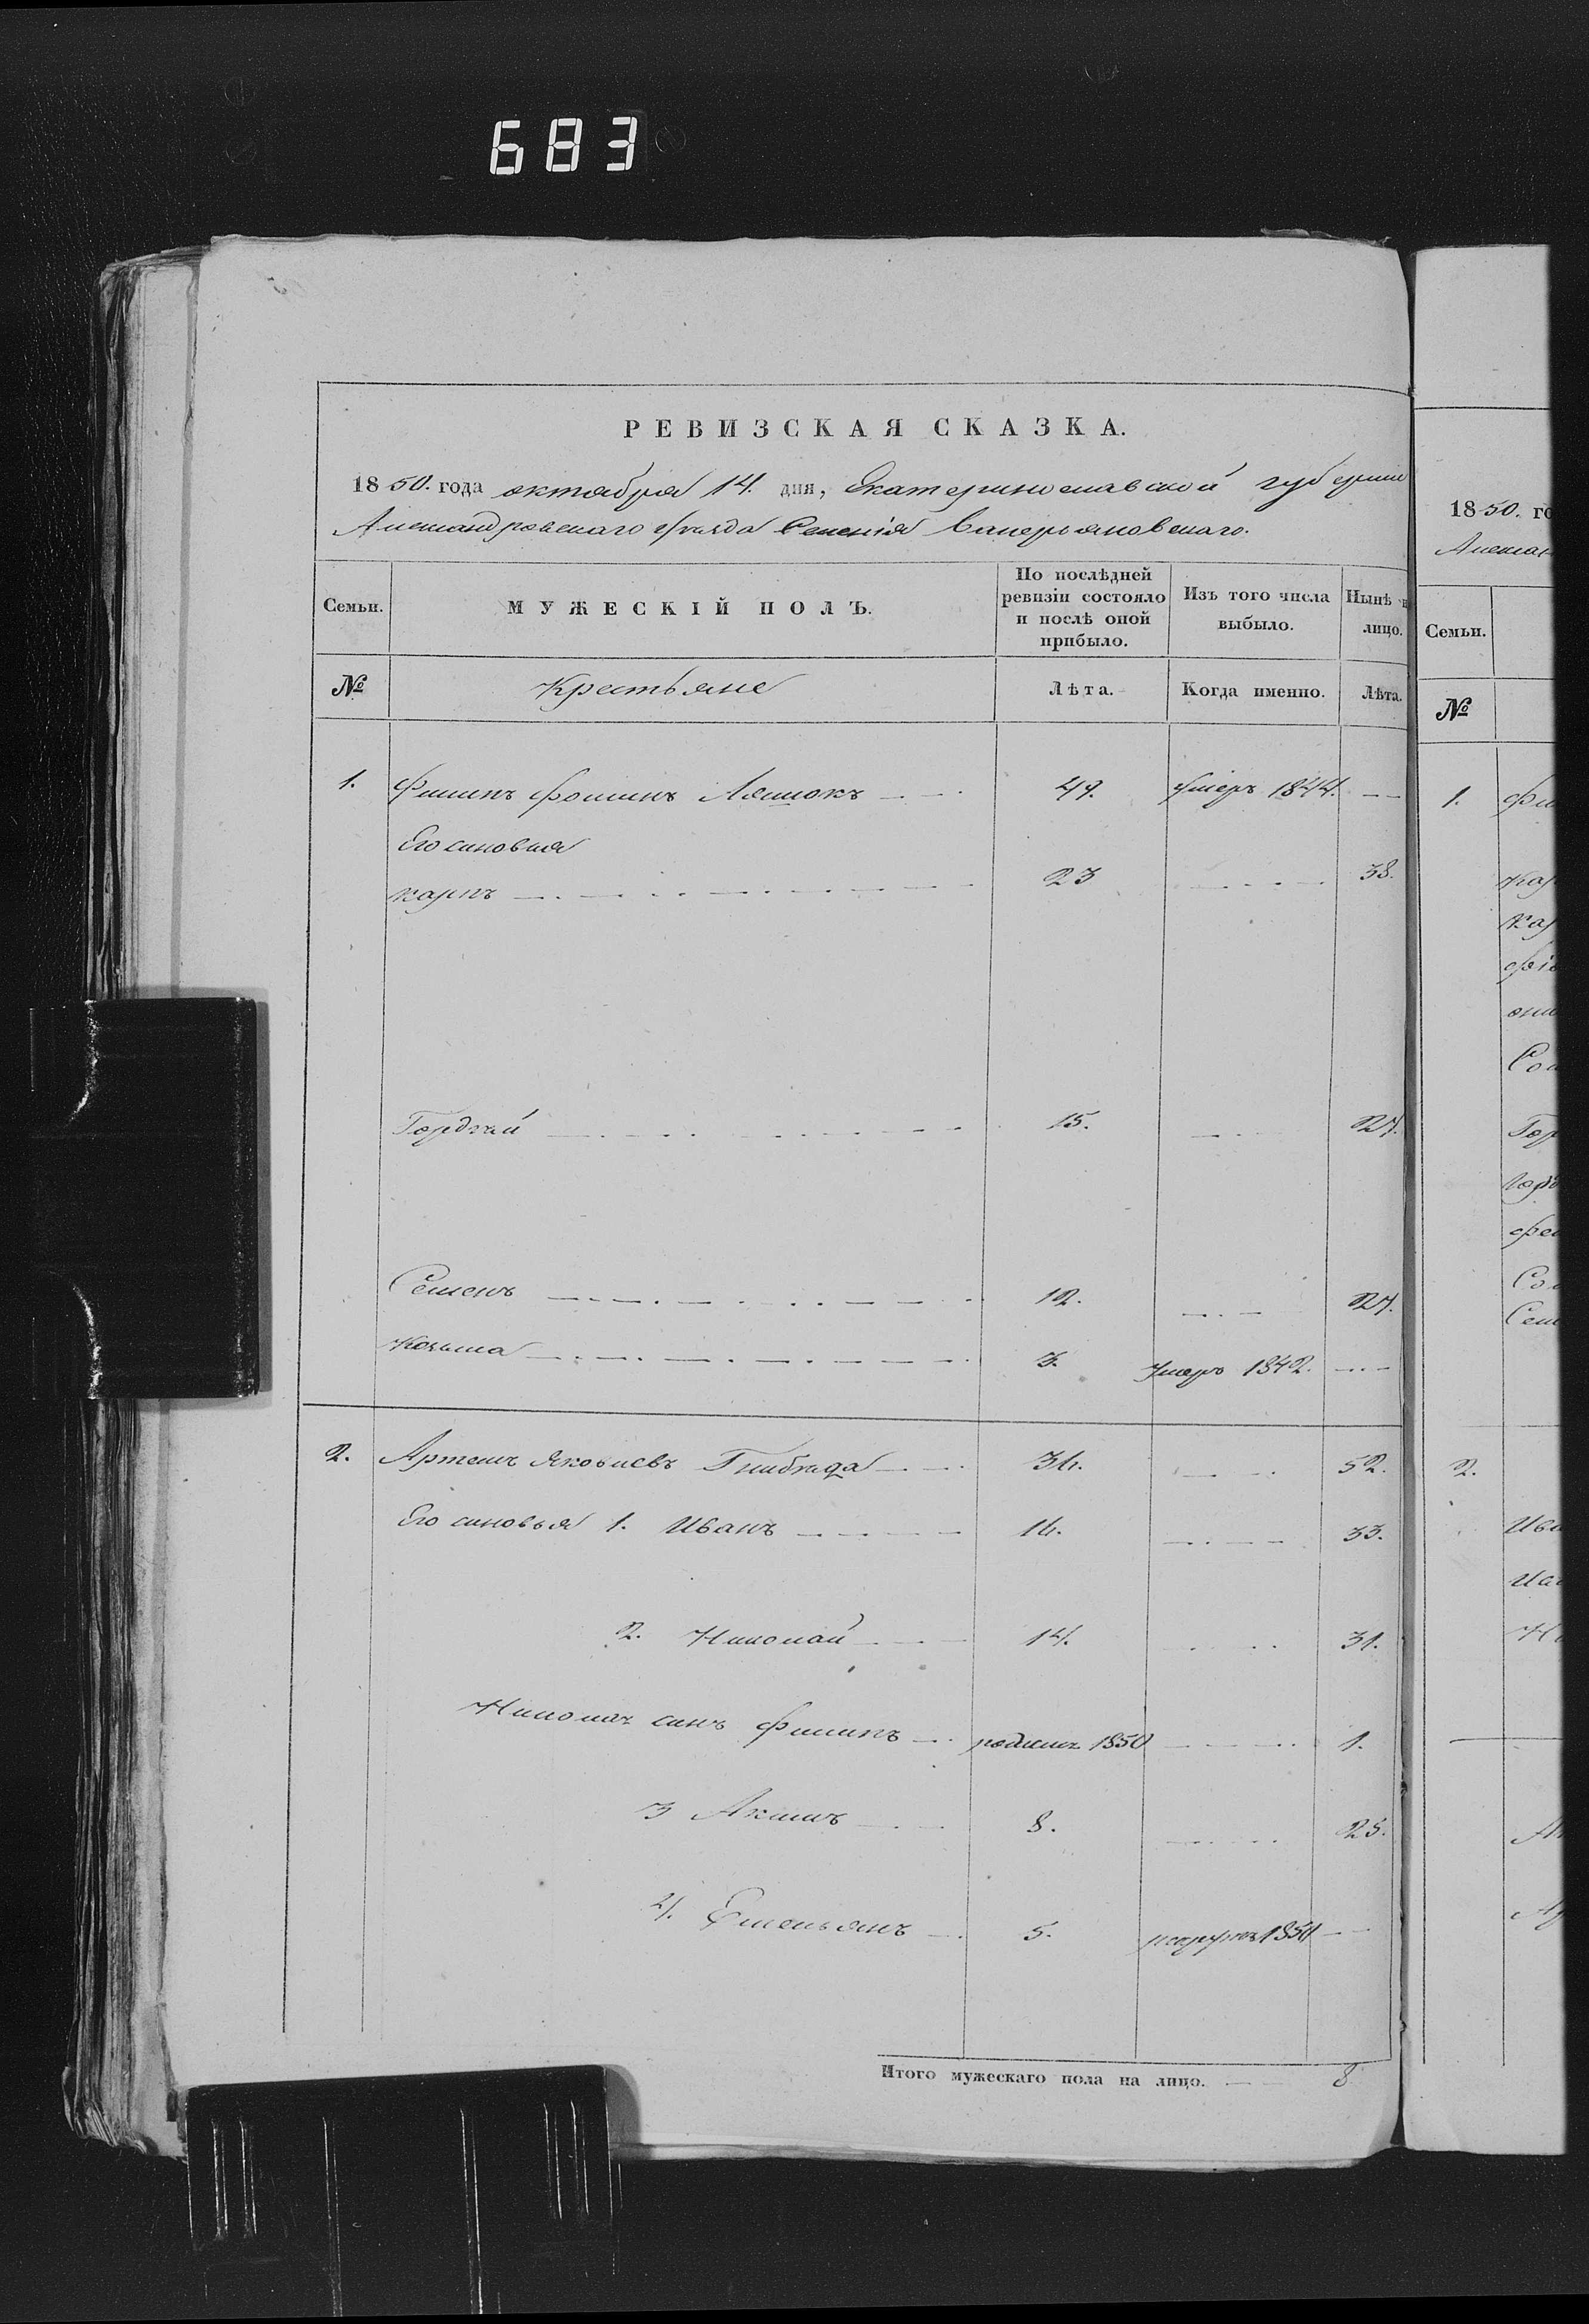 683
РЕВИЗСКАЯ СКАЗКА.
1850. года октября 14. дня, Екатеринославской губернии
Александровскаго уѣзда Селенія Валерьяновскаго.
Семьи.
МУЖЕСКІЙ ПОЛЪ.
По послѣдней ревизіи состояло и послѣ оной прибыло.
Изъ того числа выбыло.
Нынѣ
лицо.
№ Крестьяне Лѣта. Когда именно. Лѣта.
1. Филипъ Фоминъ Ляшокъ 49. Умеръ 1844. —
Его синовья
Карпъ 23 38.
Гордѣй 15. 27.
Семенъ 12. 27.
Козьма 3. Умеръ 1842. —
2. Артемъ Яковлевъ 36. 52.
Его синовья 1. Иванъ 16. 33.
2. Николай 14. 31.
Николая синъ Филипъ родился 1850 1.
3 Акимъ 8. 25.
4. Емельянъ 5. 1850 —
Итого мужескаго пола на лицо. 8
1850. го
Алексан
Семьи.
№
1. Фи
Кар
Кар
Гор
Горд
Сем
2.
Ива
Ни